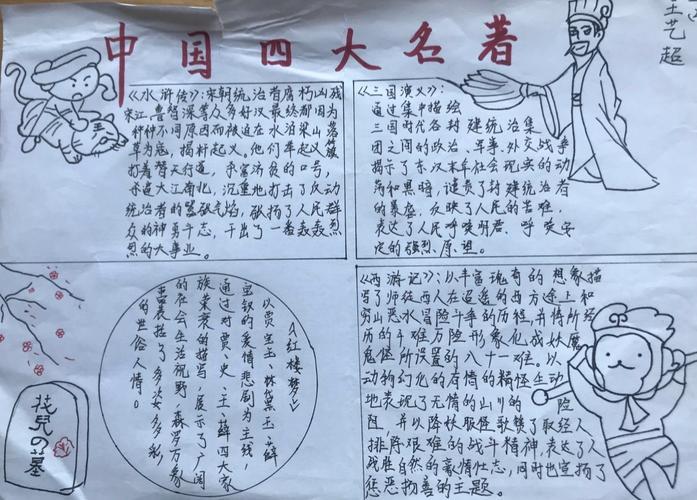 中国四大名著
王艺超
《水浒传》:宋朝统治者腐朽凶残
宋江、鲁智深等众多好汉最终都因为
种种不同原因而被迫在水泊梁山落
草为底,揭杆起义。他们率起义
打着替天行道,杀富济贫的口号,
大江南北,沉重地打击了反动
统治者的嚣张气焰,歌扬了人民群
众的神勇斗志,干出了一番轰轰烈
烈的大事业。
《三国演义》:
通过集中描绘
三国时代各封建统治集
团之间的政治、军事、外交战争
揭示了东汉末年社会现实的动
荡和黑暗,谴责了封建统治者
的暴虐,反映了人民的苦难,
表达了人民呼唤明君、呼唤安
定的强烈原望。
《红楼梦》
以贾宝玉、林黛玉、薛
宝钗的爱情悲剧为主线,
通过对贾、史、王、薛四大家
族荣衰的描写,展示了广阔
的社会生活视野,森罗万象
囊括了多姿多彩
的世俗人情。
花兒の墓
《西游记》:以丰富瑰有的想象描
写了师徒四人在迢遥的西方途上和
穷山恶水冒险斗争的历程,并将所经
历的千难万险形象化成妖魔
鬼怪所设置的八十一难。以
动物幻化的有情的精怪生动
地表现了无情的山川的险
阻,并以降妖服怪歌赞了取经人
排除艰难的战斗精神,表达了人
战胜自然的豪情壮志,同时也宣扬了
惩恶扬善的主题。